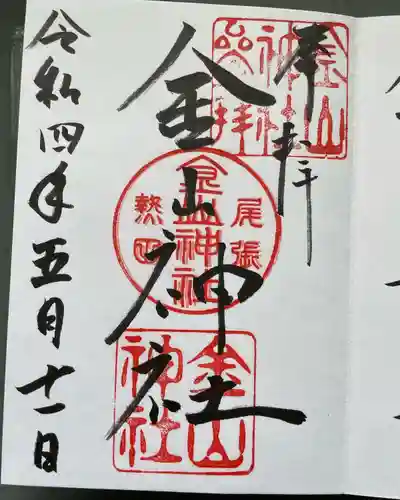 奉拝
金山神社
令和四年五月十一日
金山神社
尾張
金山神社
熱田
金山神社